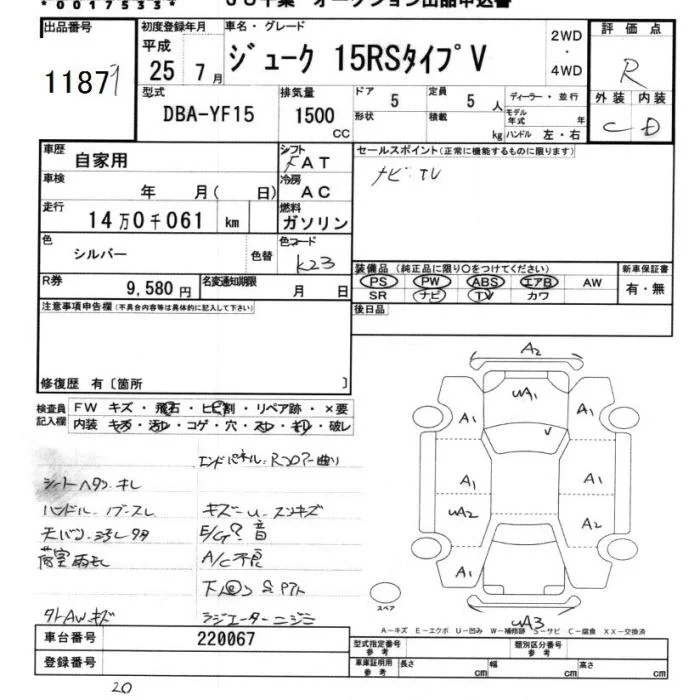 *0017533*
JU千葉 オークション出品申込書
出品番号
11871
初度登録年月
平成
25 7月
車名・グレード
ジューク 15RSタイプV
2WD
・
4WD
評価点
R
外装 内装
C D
型式
DBA-YF15
排気量
1500
CC
ドア
5
形状
定員
5 人
積載
kg
ディーラー・並行
モデル年式 年
ハンドル 左・右
車歴
自家用
シフト
FAT
車検
年 月( 日)
冷房
AC
走行
14万0千061 km
燃料
ガソリン
色
シルバー
色替
色コード
K23
R券
9,580円
名変通知期限
月 日
セールスポイント(正常に機能するものに限ります)
ナビ・TV
装備品(純正品に限り○をつけてください)
PS PW ABS エアB AW
SR ナビ TV カワ
新車保証書
有・無
後日品
注意事項申告欄(不具合内容等は具体的に記入して下さい)
修復歴 有〔箇所 〕
検査員記入欄
FW キズ・飛石・ヒビ割・リペア跡・×要
内装 キズ・汚レ・コゲ・穴・スレ・キレ・破レ
エンドパネル・Rフロアー曲り
シートヘタリ・キレ
ハンドル・ノブ・スレ
キズ・U・スリキズ
E/G?音
A/C不良
荷室雨モレ
タイヤAWキズ
ラジエーターニジミ
A2
UA1
A1
A1
A1
A1
UA2
A2
A1
UA3
スペア
A－キズ E－エクボ U－凹み W－補修跡 S－サビ C－腐食 XX－交換済
車台番号
220067
登録番号
型式指定番号
参考
類別区分番号
参考
車庫証明用
参考
長さ cm
幅 cm
高さ cm
20